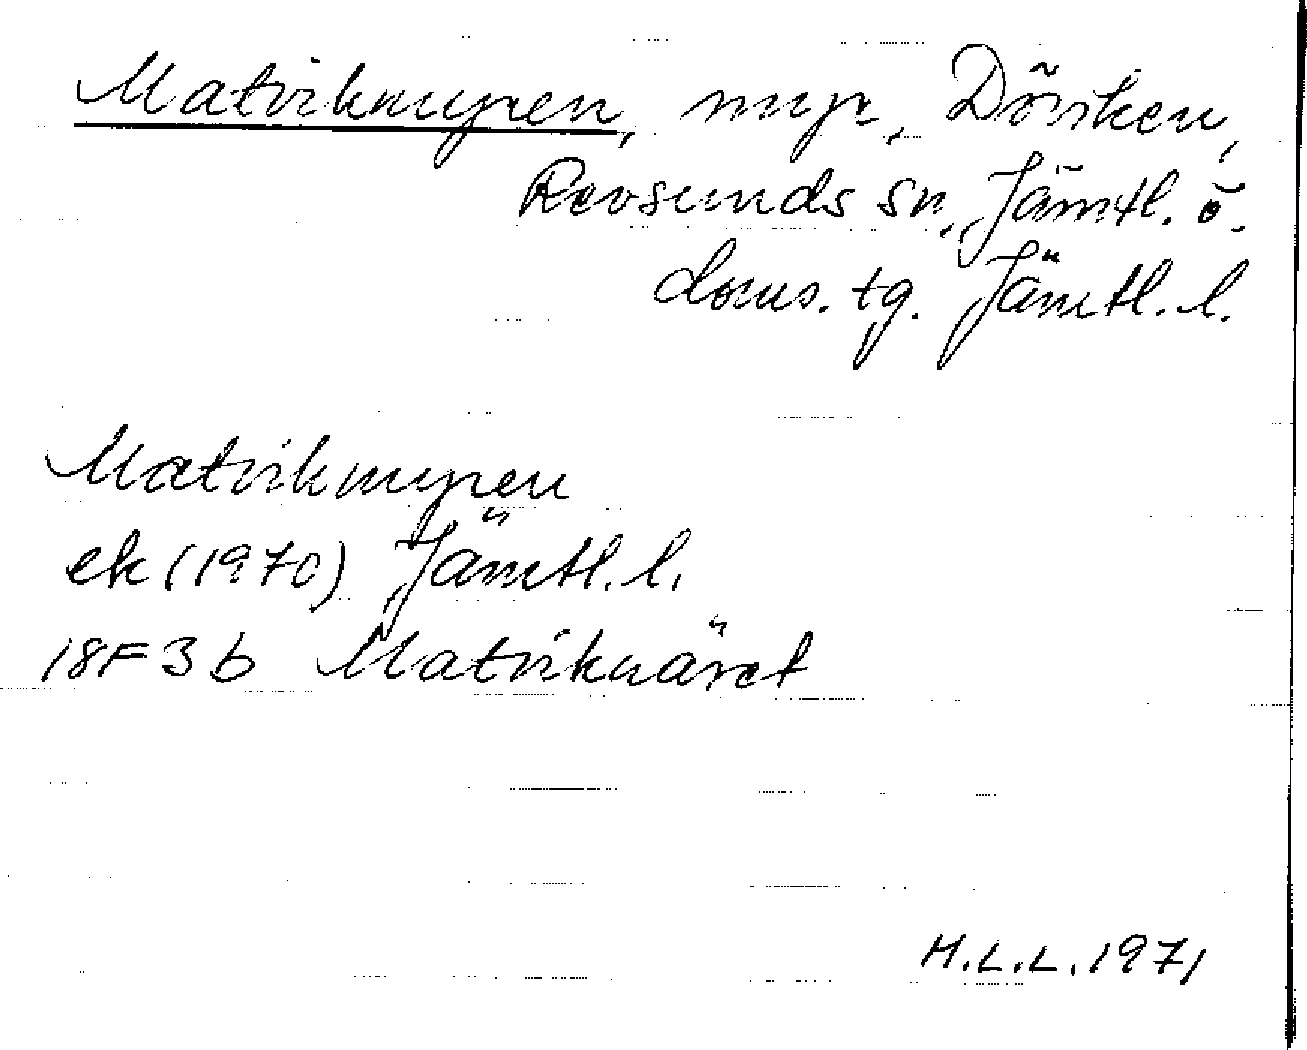 Matvikmyren, myr, Döviken,
Revsunds sn, Jämtl. ö.
doms. tg. Jämtl. l.
Matvikmyren
ek (1970) Jämtl. l.
18F 3b Matviknäret
H.L.L. 1971